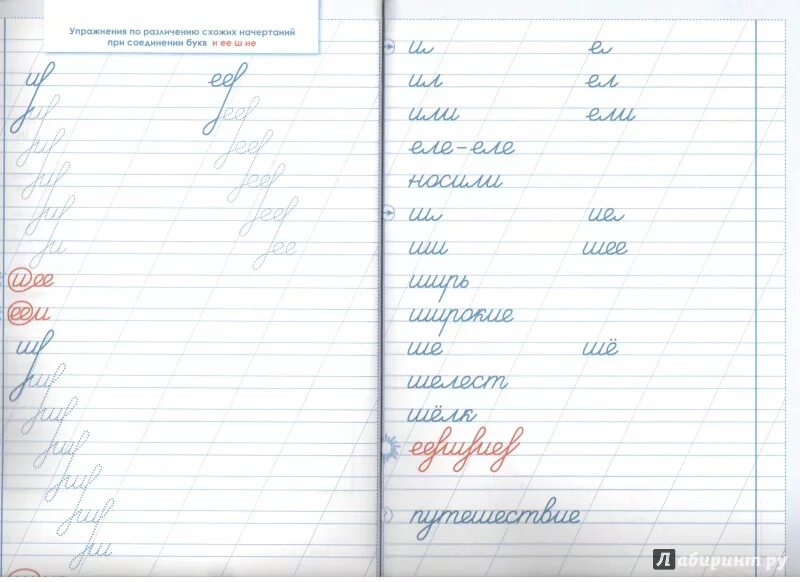 Упражнения по различению схожих начертаний
при соединении букв и ее ш не
и ее
и ее
и ее
и ее
и ее
и ее
шее
ееи
ш
ил ел
ил ел
или ели
еле-еле
носили
шл иел
ши шее
ширь
широкие
ше шё
шелест
шёлк
путешествие
Лабиринт.ру